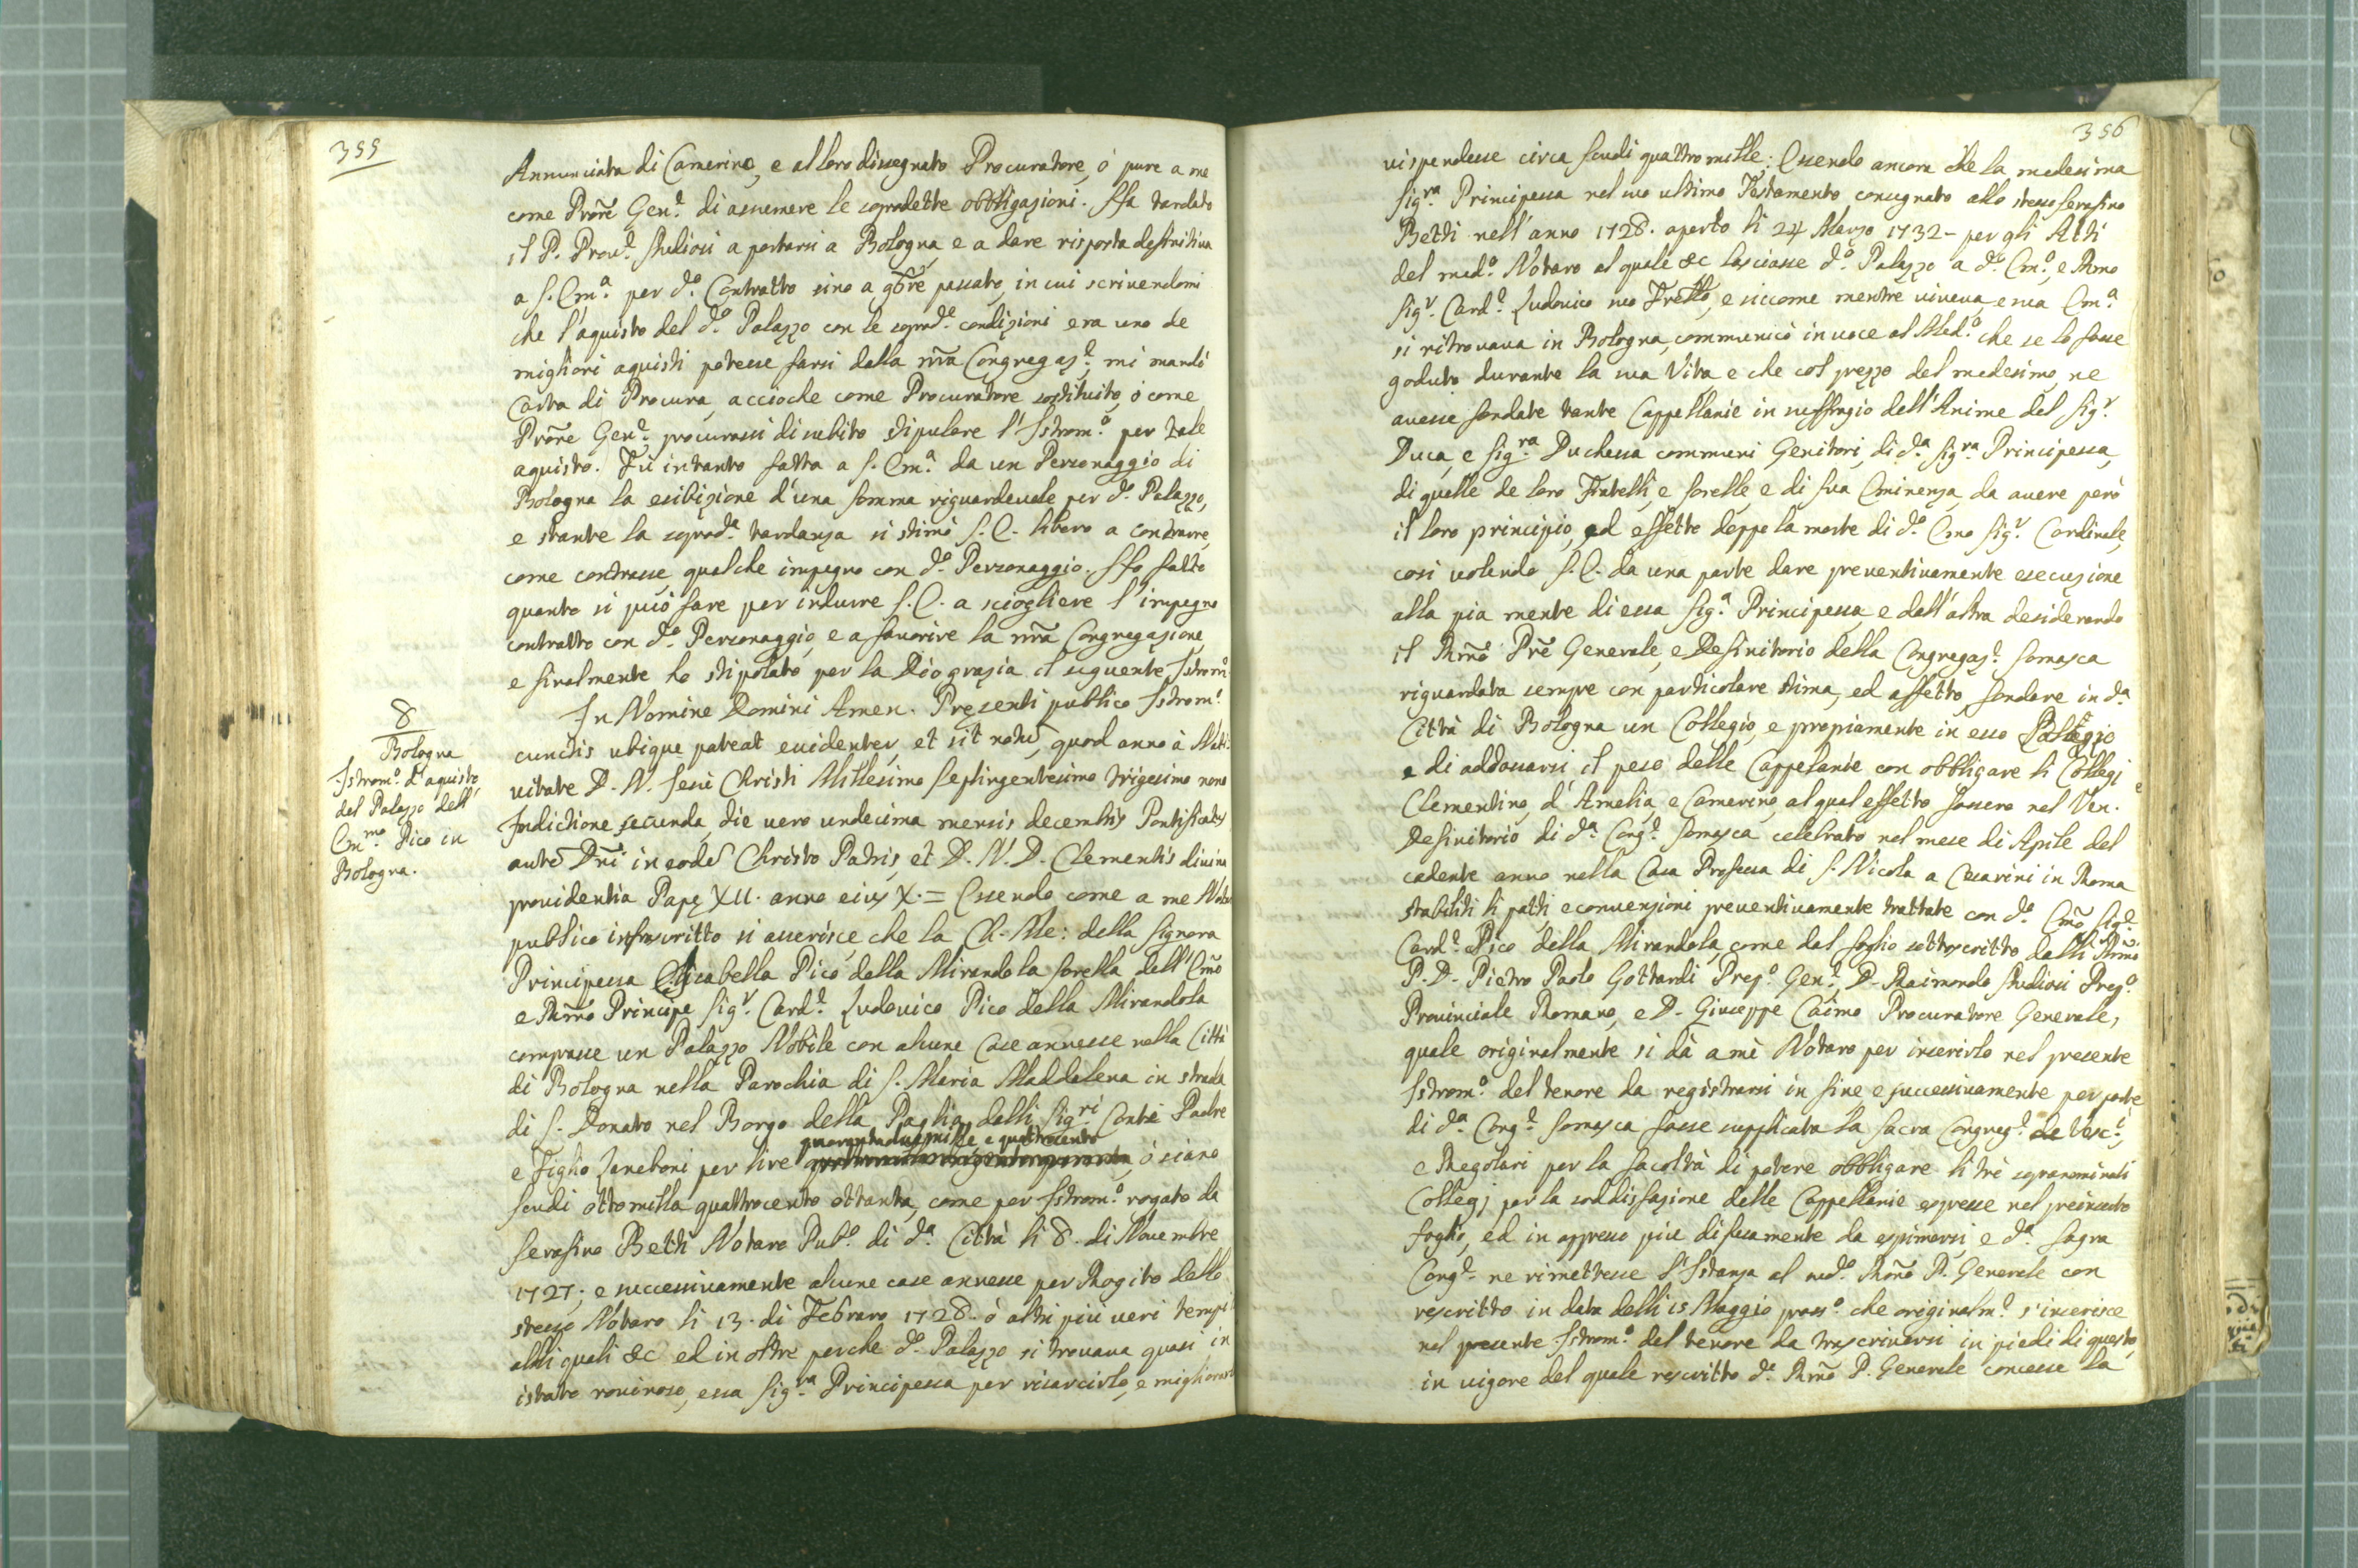 355
Annunciata di Camerino, e al loro dissegnato Procuratore, ò pure a me
come Prōre Gen.e di assumere le sopradette obbligazioni. Ha tardato
il P. Prov.e Studiosi a portarsi a Bologna, e a dare risposta deffinitiva
a S. Em.a per d.o Contratto sino a 9bre passato, in cui scrivendomi
che l'aquisto del d.o Palazzo con le soprad.e condizioni era uno de
migliori aquisti potesse farsi dalla nr̃a Congregaz.e, mi mandò
Carta di Procura, accioche come Procuratore sostituito, ò come
Prōre Gen.e procurassi di subito stipulare l'Istrom.o per tale
aquisto. Fù intanto fatta a S. Em.a da un Personaggio di
Bologna la esibizione d'una somma riguardevole per d.o Palazzo,
e stante la soprad.a tardanza si stimò S. E. libero a contrarre,
come contrasse qualche impegno con d.o Personaggio. Ho fatto
quanto si può fare per indurre S. E. a sciogliere l'impegno
contratto con d.o Personaggio, e a favorire la nr̃a Congregazione,
e finalmente ho stipolato per la Dio grazia il seguente Istrom.o
8
Bologna
Istrom.o d'aquisto
del Palazzo dell'
Em.mo Pico in
Bologna.
In Nomine Domini Amen. Presenti publico Istrom.o
cunctis ubique pateat evidenter, et sit notũ, quod anno à Nati-
vitate D. N. Jesu Christi Millesimo Septingentesimo trigesimo nono
Indictione secunda, die vero undecima mensis decembris Pontificatus
autẽ Dñi in eodẽ Christo Patris, et D. N. D. Clementis divina
providentia Papę XII. anno eius X. = Essendo come a me Notaro
publico infrascritto si asserisce che la Ch. Me: della Signora
Principessa Elisabella Pico della Mirandola sorella dell'Em̃o
e Rm̃o Principe Sig.r Card.e Ludovico Pico della Mirandola
comprasse un Palazzo Nobile con alcune Case annesse nella Città
di Bologna nella Parochia di S. Maria Maddalena in strada
di S. Donato nel Borgo della Paglia dalli Sig.ri Conti Padre
quarantaduemille e quattrocento
e Figlio Zaneboni per lire ò siano
scudi ottomilla quattrocento ottanta, come per Istrom.o rogato da
Serafino Betti Notaro Pub.o di d.a Città li 8. di Novembre
1727; e successivamente alcune case annesse per Rogito dello
stesso Notaro li 13. di Febraro 1728. ò altri più veri tempi
alli quali &c ed in oltre perche d.o Palazzo si trovava quasi in
istato rovinoso, essa Sig.ra Principessa per risarcirlo, e migliorarlo
356
vi spendesse circa scudi quattromille; Essendo ancora che la medesima
Sig.ra Principessa nel suo ultimo Testamento consegnato allo stesso Serafino
Betti nell'anno 1728. aperto li 24 Marzo 1732 - per gli Atti
del med.o Notaro al quale &c lasciasse d.o Palazzo a d.o Em.o, e Rmo
Sig.r Card.e Ludovico suo Frello, e siccome mentre viveva, e sua Em.a
si ritrovava in Bologna, communicò in voce al Med.o che se lo fosse
goduto durante la sua Vita e che col prezzo del medesimo, ne
avesse fondate tante Cappellanie in suffragio dell'Anime del Sig.r
Duca, e Sig.ra Duchessa communi Genitori, di d.a Sig.ra Principessa,
di quelle de loro Fratelli, e sorelle, e di Sua Eminenza, da avere però
il loro principio, ed effetto doppo la morte di d.o Emo Sig.r Cardinale,
così volendo S. E. da una parte dare preventivamente esecuzione
alla pia mente di essa Sig.a Principessa, e dall'altra desiderando
il Rm̃o Prẽ Generale, e Definitorio della Congregaz.e Somasca
riguardata sempre con particolare stima, ed affetto, fondare in d.a
Città di Bologna un Collegio, e propriamente in esso Palazzo
e di addossarsi il peso delle Cappelanie con obbligare li Collegi
Clementino, d'Amelia, e Camerino, al qual effetto fossero nel Ven.e
Definitorio di d.a Cong.e Somasca celebrato nel mese di Aprile del
cadente anno nella Casa Professa di S. Nicola a Cesarini in Roma
stabiliti li patti e convenzioni preventivamente trattate con d.o Em̃o Sig.r
Card.e Pico della Mirandola, come dal foglio sottoscritto dalli Rm̃i
P. D. Pietro Paolo Gottardi Prep.o Gen.e, D. Raimondo Studiosi Prep.o
Provinciale Romano, e D. Giuseppe Caimo Procuratore Generale,
quale originalmente si dà a mè Notaro per inserirlo nel presente
Istrom.o del tenore da registrarsi in fine e successivamente per parte
di d.a Cong.e Somasca fosse supplicata la Sacra Congreg.e de Vesc.i,
e Regolari per la facoltà di potere obbligare li trè sopranominati
Collegj per la soddisfazione delle Cappellanie espresse nel preinserto
foglio, ed in appresso più difusamente da esprimersi, e d.a Sagra
Cong.e ne rimettesse l'Istanza al med.o Rm̃o P. Generale con
rescritto in data delli 15 Maggio pross.o che originalm.e s'inserisce
nel presente Istrom.o del tenore da trascriversi in piedi di questo,
in vigore del quale rescritto d.o Rm̃o P. Generale concesse la